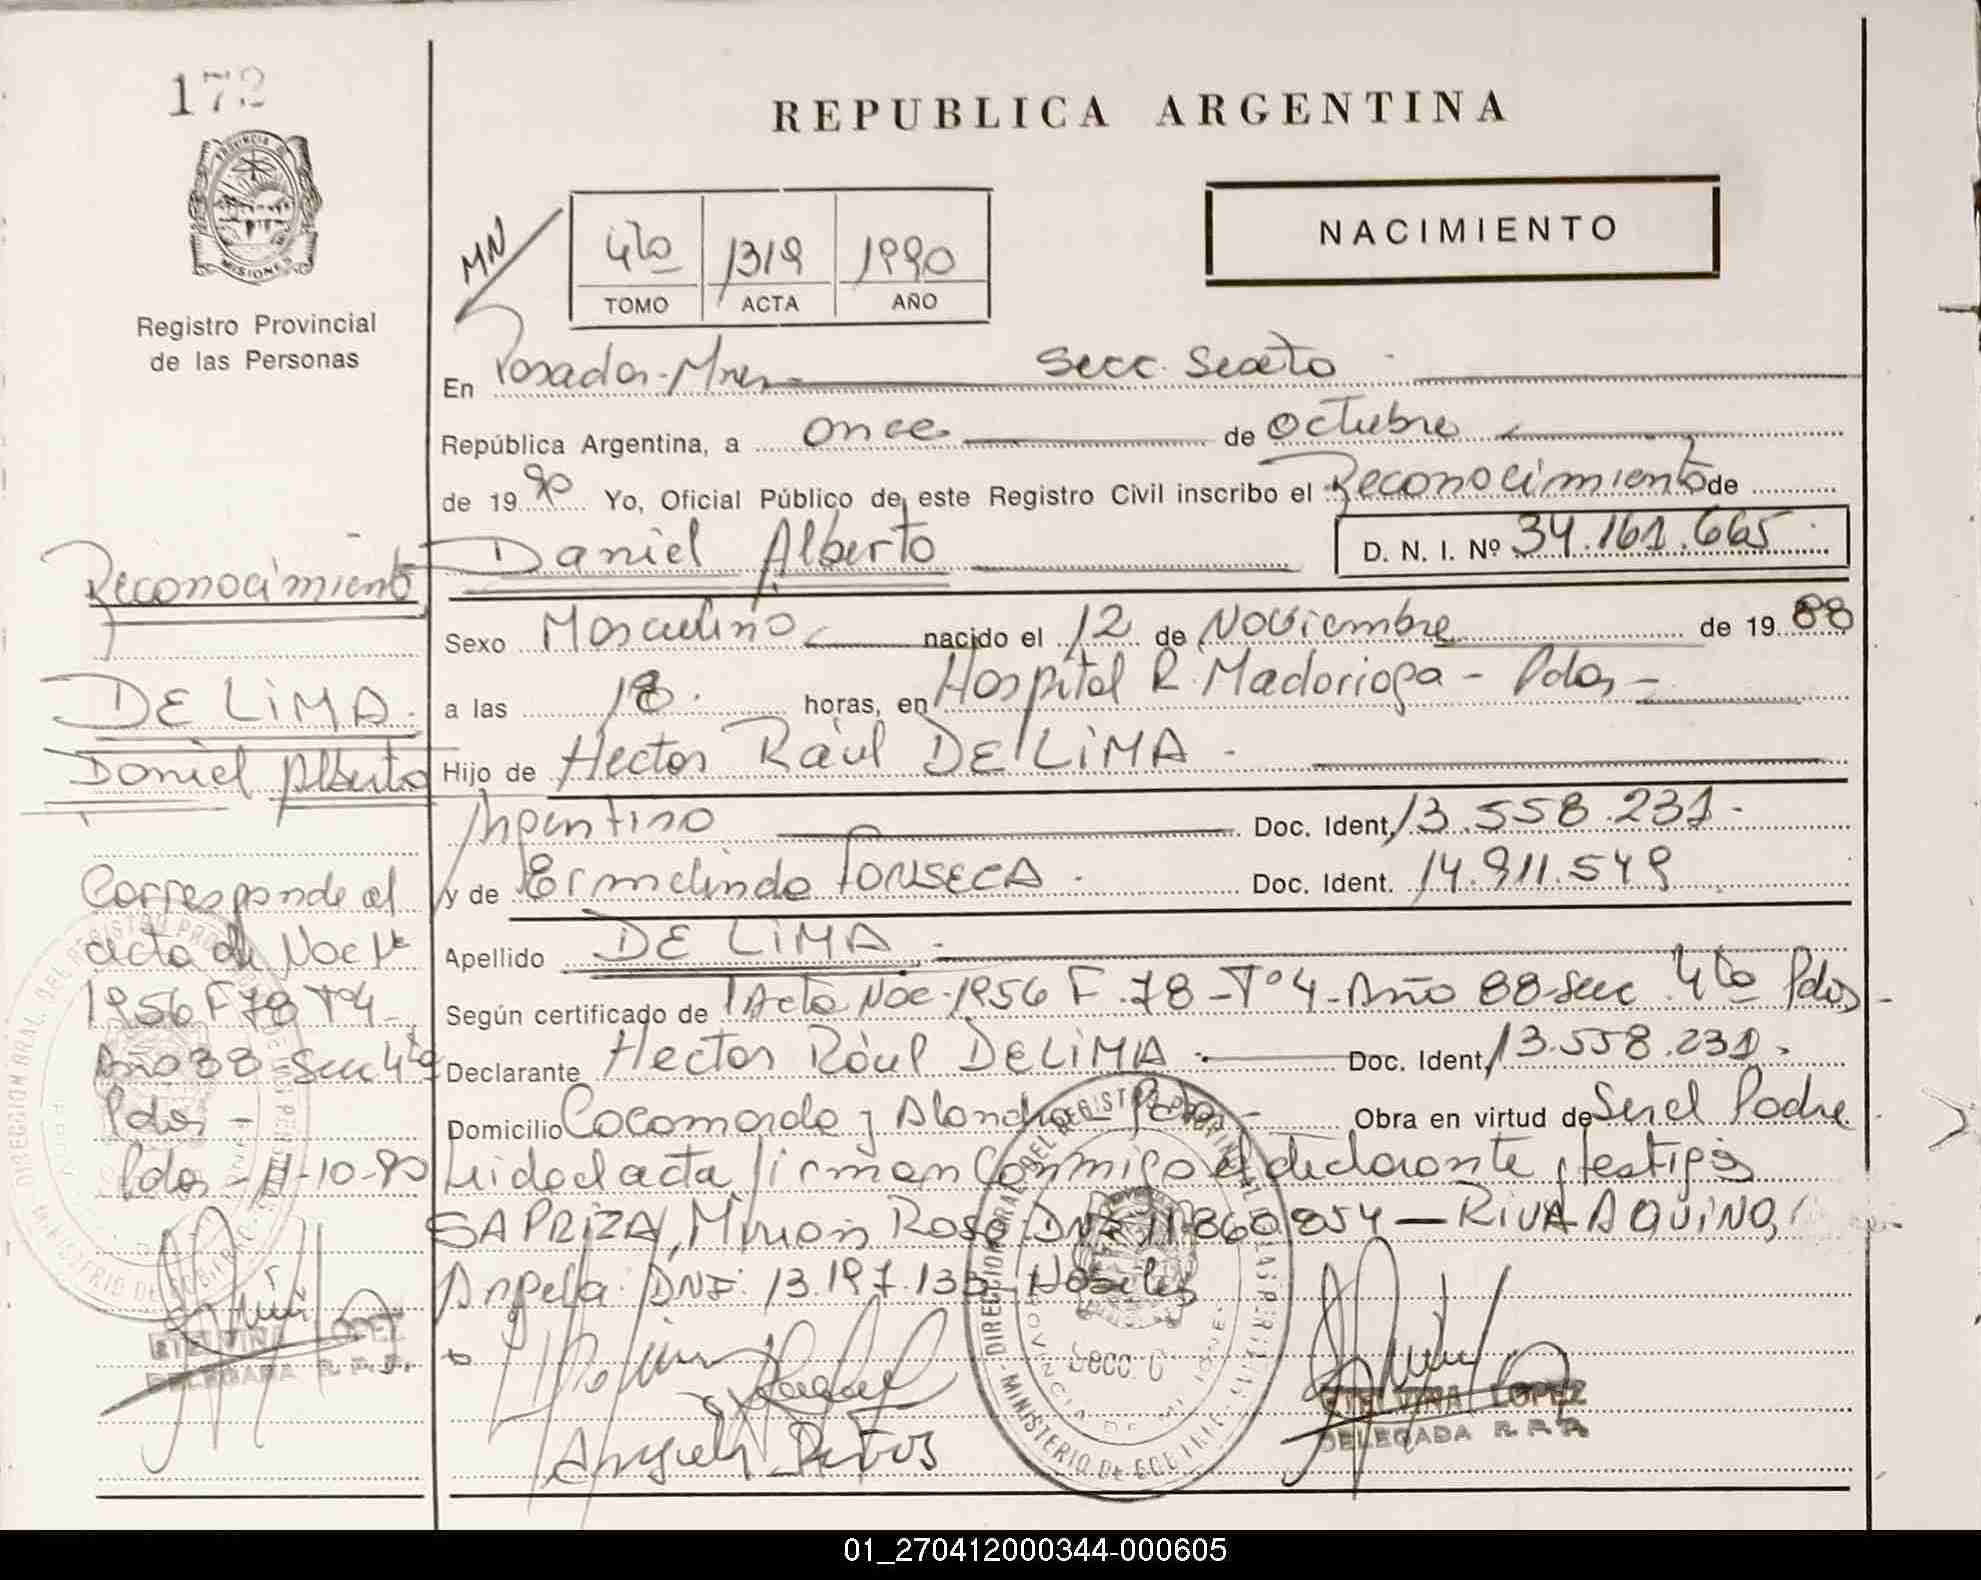 172
PROVINCIA DE
MISIONES
Registro Provincial
de las Personas
Reconocimiento
DE LIMA.
Daniel Alberto
Corresponde al
acta de Nac Nº
1956 F 78 Tº4
Año 88 - Secc 4ta
Pdas -
Pdas - 11-10-90
ETELVINA LOPEZ
DELEGADA R.P.P.
REPUBLICA ARGENTINA
NACIMIENTO
MN
4to 1319 1990
TOMO ACTA AÑO
En Posadas - Mnes - Secc. Sexta -
República Argentina, a once de octubre
de 1990 Yo, Oficial Público de este Registro Civil inscribo el Reconocimiento de
Daniel Alberto D. N. I. Nº 34.161.665
Sexo Masculino nacido el 12 de Noviembre de 1988
a las 18. horas, en Hospital R. Madariaga - Pdas -
Hijo de Hector Raúl DE LIMA -
Argentino Doc. Ident. 13.558.231 -
y de Ermelinda FONSECA . Doc. Ident. 14.911.549
Apellido DE LIMA . -
Según certificado de Acta Nac - 1956 F. 78 - Tº 4 - Año 88 - Secc 4ta Pdas -
Declarante Hector Raúl DE LIMA - Doc. Ident. 13.558.231 .
Domicilio Cocomarola y Alondra - Pdas - Obra en virtud de Ser el Padre
Leida el acta firman conmigo el declarante y testigos
SAPRIZA, Rosa DNI 11.860.854 — RIVA AQUINO,
Angela DNI: 13.197.133 - Habiles
DIRECCION GRAL. DEL REGISTRO PROVINCIAL DE LAS PERSONAS
MINISTERIO DE GOBIERNO
PROVINCIA DE MISIONES
Secc. 6
ETELVINA LOPEZ
DELEGADA R.P.P.
01_270412000344-000605